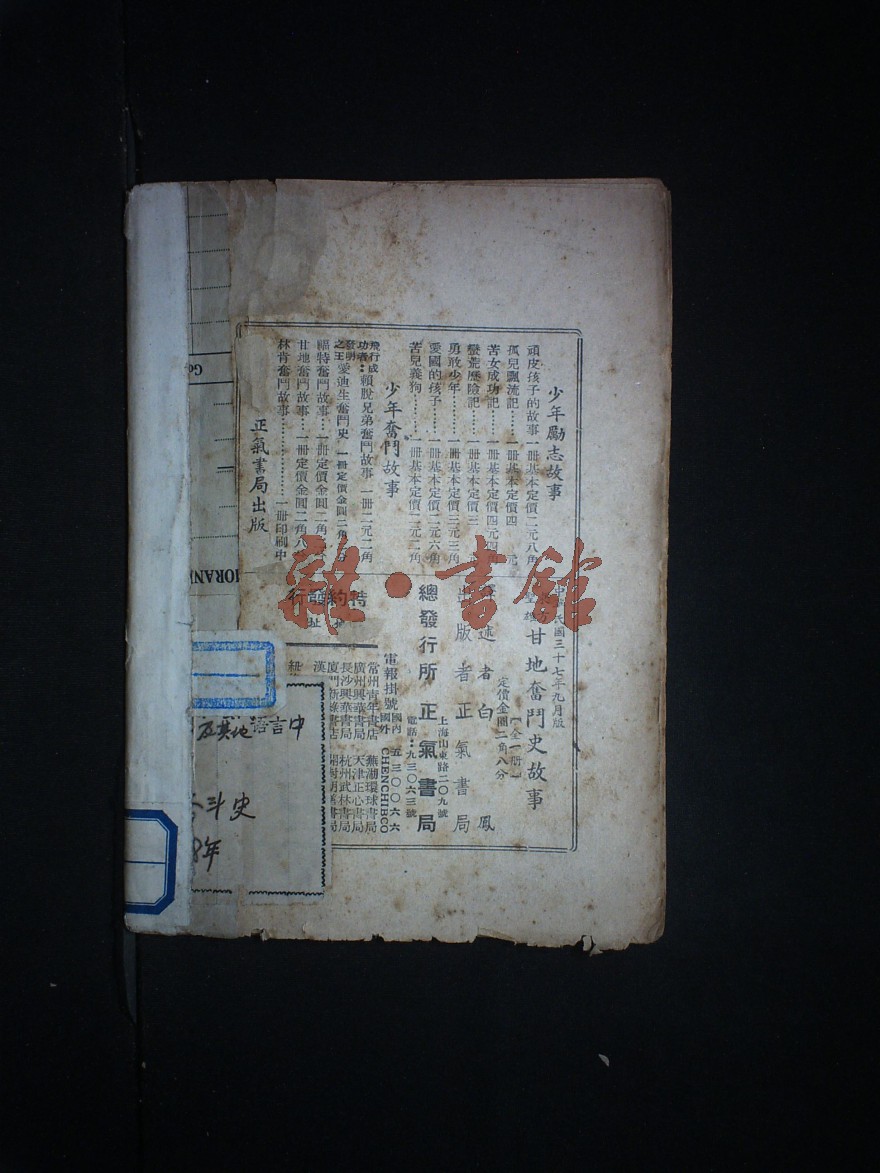 少年勵志故事
頑皮孩子的故事 一冊基本定價二元八角
孤兒飄流記……一冊基本定價四 元
苦女成功記……一冊基本定價四元四
蠻荒歷險記……一冊基本定價三
勇敢少年………一冊基本定價三元三角
愛國的孩子……一冊基本定價二元六角
苦兒義狗………一冊基本定價二元二角
少年奮鬥故事
飛行成功者：賴脫兄弟奮鬥故事 一冊二元二角
發明之王 愛迪生奮鬥史 一冊定價金圓二角 分
福特奮鬥故事…一冊定價金圓二角
甘地奮鬥故事…一冊定價金圓二角八
林肯奮鬥故事………………一冊印刷中
正氣書局出版
中 民國三十七年九月版
甘地奮鬥史故事
【全一冊】
定價金圓二角八分
述者 白 鳳
出版者 正氣書局
總發行所 正氣書局
上海山東路二〇九號
電話：九三〇六三號
特約發行
電報掛號 國內 五三〇〇六六
國外 CHENCHIBCO
常州青年書店 蕪湖環球書局
廣州興華書局 天津正心書局
長沙興華書局 杭州武林書局
廈門新綠書店 開封 書局
漢
雜·書館
MORAN
语言中
斗史
年